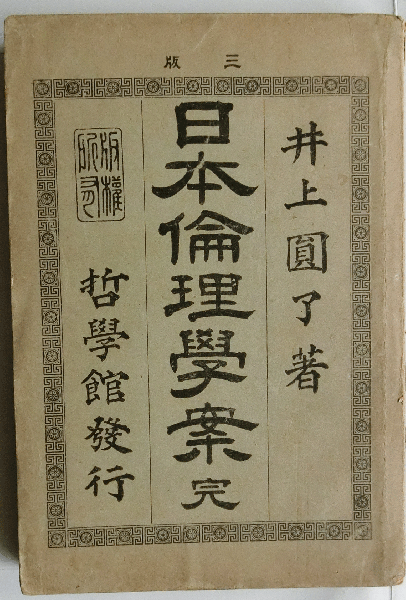 三版
井上圓了著
日本倫理學案完
版權所有
哲學館發行